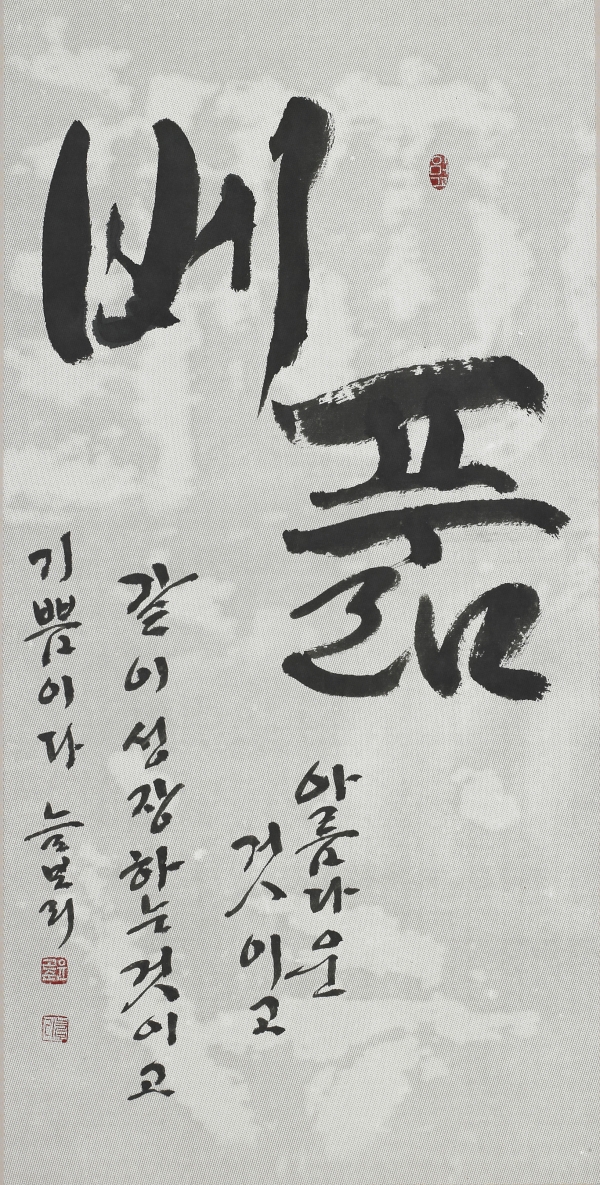 베풂
아름다운
것이고
같이 성장하는것이고
기쁨이다